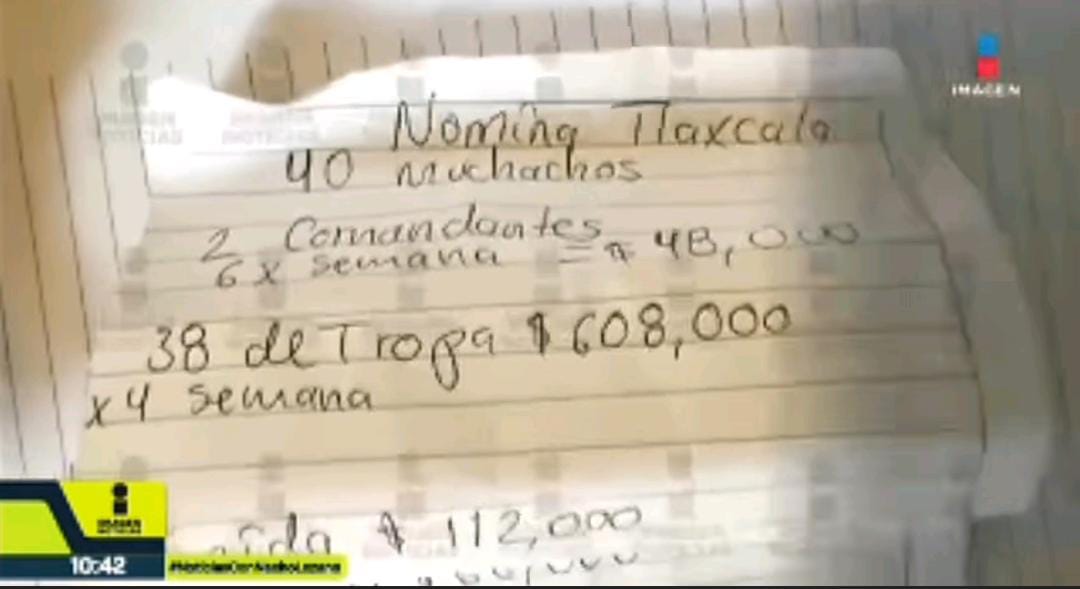 IMAGEN
Nomina Tlaxcala
40 muchachos
2 Comandantes
6 x semana = $ 48,000
38 de Tropa $ 608,000
x 4 semana
$ 112,000
10:42
#NoticiasConNachoLozano